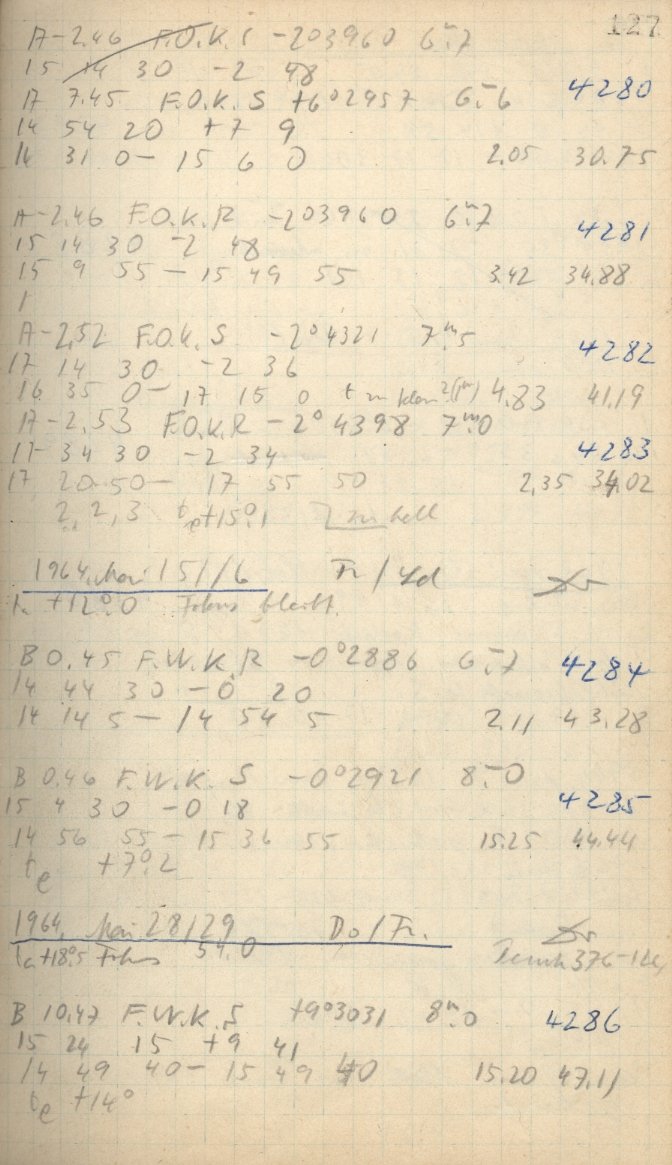 127
A-2.46 F.O.K.S -2°3960 6ᵐ.7
15 14 30 -2 48
17 7.45 F.O.K.S +6°2957 6ᵐ.6 4280
14 54 20 +7 9
14 31 0 - 15 6 0 2.05 30.75
A-2.46 F.O.K.R -2°3960 6ᵐ.7
15 14 30 -2 48 4281
15 9 55 - 15 49 55 3.42 34.88
A-2.52 F.O.K.S -2°4321 7ᵐ.5
17 14 30 -2 36 4282
16 35 0 - 17 15 0 t zu klein 4.83 41.19
A-2.53 F.O.K.R -2°4398 7ᵐ.0
17 34 30 -2 34 4283
17 20 50 - 17 55 50 2.35 34.02
2, 2, 3 tₑ +15°.1 zu hell
1964, Mai 15/16 Fr/
tₐ +12°.0 Fokus bleibt.
B 0.45 F.W.K.R -0°2886 6ᵐ.7 4284
14 44 30 -0 20
14 14 5 - 14 54 5 2.11 43.28
B 0.46 F.W.K.S -0°2921 8ᵐ.0
15 4 30 -0 18 4285
14 56 55 - 15 36 55 15.25 44.44
tₑ +7°.2
1964, Mai 28/29 Do/Fr.
tₐ +18°.5 Fokus 54.0
B 10.47 F.W.K.S +9°3031 8ᵐ.0 4286
15 24 15 +9 41
14 49 40 - 15 49 40 15.20 47.11
tₑ +14°